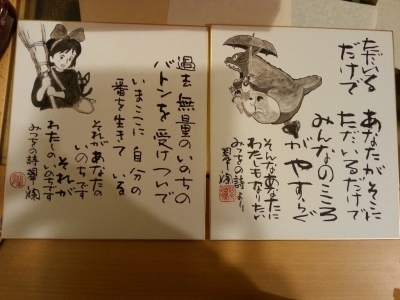 ただいる
だけで
あなたがそこに
ただいるだけで
みんなのこころ
がやすらぐ
そんなあなたに
わたしもなりたい
みつをの詩より
過去無量のいのちの
バトンを受けついで
いまここに自分の
番を生きている
それがあなたの
いのちです
それが
わたしのいのちです
みつをの詩